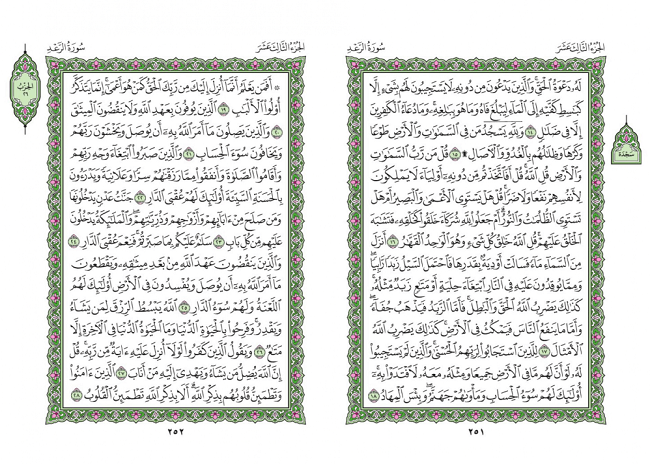 الجُزْءُ الثَّالِثَ عَشَرَ سُورَةُ الرَّعْدِ
لَهُۥ دَعْوَةُ ٱلْحَقِّ وَٱلَّذِينَ يَدْعُونَ مِن دُونِهِۦ لَا يَسْتَجِيبُونَ لَهُم بِشَىْءٍ إِلَّا
كَبَٰسِطِ كَفَّيْهِ إِلَى ٱلْمَآءِ لِيَبْلُغَ فَاهُ وَمَا هُوَ بِبَٰلِغِهِۦ وَمَا دُعَآءُ ٱلْكَٰفِرِينَ
إِلَّا فِى ضَلَٰلٍ ١٤ وَلِلَّهِ يَسْجُدُ مَن فِى ٱلسَّمَٰوَٰتِ وَٱلْأَرْضِ طَوْعًا
وَكَرْهًا وَظِلَٰلُهُم بِٱلْغُدُوِّ وَٱلْءَاصَالِ ۩ ١٥ قُلْ مَن رَّبُّ ٱلسَّمَٰوَٰتِ
وَٱلْأَرْضِ قُلِ ٱللَّهُ قُلْ أَفَٱتَّخَذْتُم مِّن دُونِهِۦٓ أَوْلِيَآءَ لَا يَمْلِكُونَ
لِأَنفُسِهِمْ نَفْعًا وَلَا ضَرًّا قُلْ هَلْ يَسْتَوِى ٱلْأَعْمَىٰ وَٱلْبَصِيرُ أَمْ هَلْ
تَسْتَوِى ٱلظُّلُمَٰتُ وَٱلنُّورُ أَمْ جَعَلُوا۟ لِلَّهِ شُرَكَآءَ خَلَقُوا۟ كَخَلْقِهِۦ فَتَشَٰبَهَ
ٱلْخَلْقُ عَلَيْهِمْ قُلِ ٱللَّهُ خَٰلِقُ كُلِّ شَىْءٍ وَهُوَ ٱلْوَٰحِدُ ٱلْقَهَّٰرُ ١٦ أَنزَلَ
مِنَ ٱلسَّمَآءِ مَآءً فَسَالَتْ أَوْدِيَةٌۢ بِقَدَرِهَا فَٱحْتَمَلَ ٱلسَّيْلُ زَبَدًا رَّابِيًا
وَمِمَّا يُوقِدُونَ عَلَيْهِ فِى ٱلنَّارِ ٱبْتِغَآءَ حِلْيَةٍ أَوْ مَتَٰعٍ زَبَدٌ مِّثْلُهُۥ
كَذَٰلِكَ يَضْرِبُ ٱللَّهُ ٱلْحَقَّ وَٱلْبَٰطِلَ فَأَمَّا ٱلزَّبَدُ فَيَذْهَبُ جُفَآءً
وَأَمَّا مَا يَنفَعُ ٱلنَّاسَ فَيَمْكُثُ فِى ٱلْأَرْضِ كَذَٰلِكَ يَضْرِبُ ٱللَّهُ
ٱلْأَمْثَالَ ١٧ لِلَّذِينَ ٱسْتَجَابُوا۟ لِرَبِّهِمُ ٱلْحُسْنَىٰ وَٱلَّذِينَ لَمْ يَسْتَجِيبُوا۟
لَهُۥ لَوْ أَنَّ لَهُم مَّا فِى ٱلْأَرْضِ جَمِيعًا وَمِثْلَهُۥ مَعَهُۥ لَٱفْتَدَوْا۟ بِهِۦٓ
أُو۟لَٰٓئِكَ لَهُمْ سُوٓءُ ٱلْحِسَابِ وَمَأْوَىٰهُمْ جَهَنَّمُ وَبِئْسَ ٱلْمِهَادُ ١٨
سجدة
٢٥١
الجُزْءُ الثَّالِثَ عَشَرَ سُورَةُ الرَّعْدِ
۞ أَفَمَن يَعْلَمُ أَنَّمَآ أُنزِلَ إِلَيْكَ مِن رَّبِّكَ ٱلْحَقُّ كَمَنْ هُوَ أَعْمَىٰٓ إِنَّمَا يَتَذَكَّرُ
أُو۟لُوا۟ ٱلْأَلْبَٰبِ ١٩ ٱلَّذِينَ يُوفُونَ بِعَهْدِ ٱللَّهِ وَلَا يَنقُضُونَ ٱلْمِيثَٰقَ
٢٠ وَٱلَّذِينَ يَصِلُونَ مَآ أَمَرَ ٱللَّهُ بِهِۦٓ أَن يُوصَلَ وَيَخْشَوْنَ رَبَّهُمْ
وَيَخَافُونَ سُوٓءَ ٱلْحِسَابِ ٢١ وَٱلَّذِينَ صَبَرُوا۟ ٱبْتِغَآءَ وَجْهِ رَبِّهِمْ
وَأَقَامُوا۟ ٱلصَّلَوٰةَ وَأَنفَقُوا۟ مِمَّا رَزَقْنَٰهُمْ سِرًّا وَعَلَانِيَةً وَيَدْرَءُونَ
بِٱلْحَسَنَةِ ٱلسَّيِّئَةَ أُو۟لَٰٓئِكَ لَهُمْ عُقْبَى ٱلدَّارِ ٢٢ جَنَّٰتُ عَدْنٍ يَدْخُلُونَهَا
وَمَن صَلَحَ مِنْ ءَابَآئِهِمْ وَأَزْوَٰجِهِمْ وَذُرِّيَّٰتِهِمْ وَٱلْمَلَٰٓئِكَةُ يَدْخُلُونَ
عَلَيْهِم مِّن كُلِّ بَابٍ ٢٣ سَلَٰمٌ عَلَيْكُم بِمَا صَبَرْتُمْ فَنِعْمَ عُقْبَى ٱلدَّارِ ٢٤
وَٱلَّذِينَ يَنقُضُونَ عَهْدَ ٱللَّهِ مِنۢ بَعْدِ مِيثَٰقِهِۦ وَيَقْطَعُونَ
مَآ أَمَرَ ٱللَّهُ بِهِۦٓ أَن يُوصَلَ وَيُفْسِدُونَ فِى ٱلْأَرْضِ أُو۟لَٰٓئِكَ لَهُمُ
ٱللَّعْنَةُ وَلَهُمْ سُوٓءُ ٱلدَّارِ ٢٥ ٱللَّهُ يَبْسُطُ ٱلرِّزْقَ لِمَن يَشَآءُ
وَيَقْدِرُ وَفَرِحُوا۟ بِٱلْحَيَوٰةِ ٱلدُّنْيَا وَمَا ٱلْحَيَوٰةُ ٱلدُّنْيَا فِى ٱلْءَاخِرَةِ إِلَّا
مَتَٰعٌ ٢٦ وَيَقُولُ ٱلَّذِينَ كَفَرُوا۟ لَوْلَآ أُنزِلَ عَلَيْهِ ءَايَةٌ مِّن رَّبِّهِۦ قُلْ
إِنَّ ٱللَّهَ يُضِلُّ مَن يَشَآءُ وَيَهْدِىٓ إِلَيْهِ مَنْ أَنَابَ ٢٧ ٱلَّذِينَ ءَامَنُوا۟
وَتَطْمَئِنُّ قُلُوبُهُم بِذِكْرِ ٱللَّهِ أَلَا بِذِكْرِ ٱللَّهِ تَطْمَئِنُّ ٱلْقُلُوبُ ٢٨
الحزب
٢٦
٢٥٢